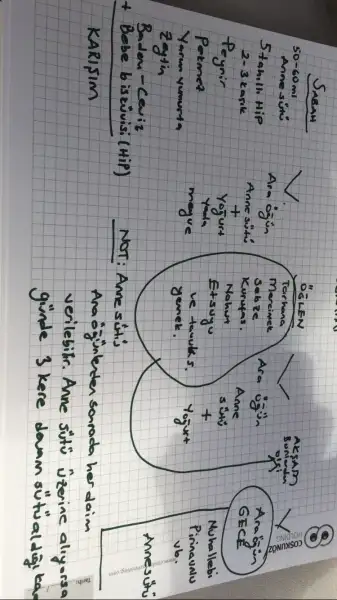 SABAH
50-60 ml
Anne sütü
5 tahıllı HiP
2-3 kaşık
Peynir
Pekmez
Yarım yumurta
Zeytin
Badem-Ceviz
+ Bebe bisküvisi (HiP)
KARIŞIM
Ara öğün
Anne sütü
+
Yoğurt
yada
meyve
ÖĞLEN
Tarhana
Mercimek
Sebze
Kuruyas.
Nohut
Et suyu
ve tavuk s.
yemek.
Ara öğün
Anne
sütü
+
Yoğurt
AKŞAM
bunlardan
biri
Ara öğün
GECE
Muhallebi
Pirinç unlu
vb.
Anne sütü
NOT: Anne sütü
Ara öğünlerden sonrada her daim
verilebilir. Anne sütü üzerine alıyorsa
günde 3 kere devam sütü aldığı
COŞKUNÖZ
HOLDING